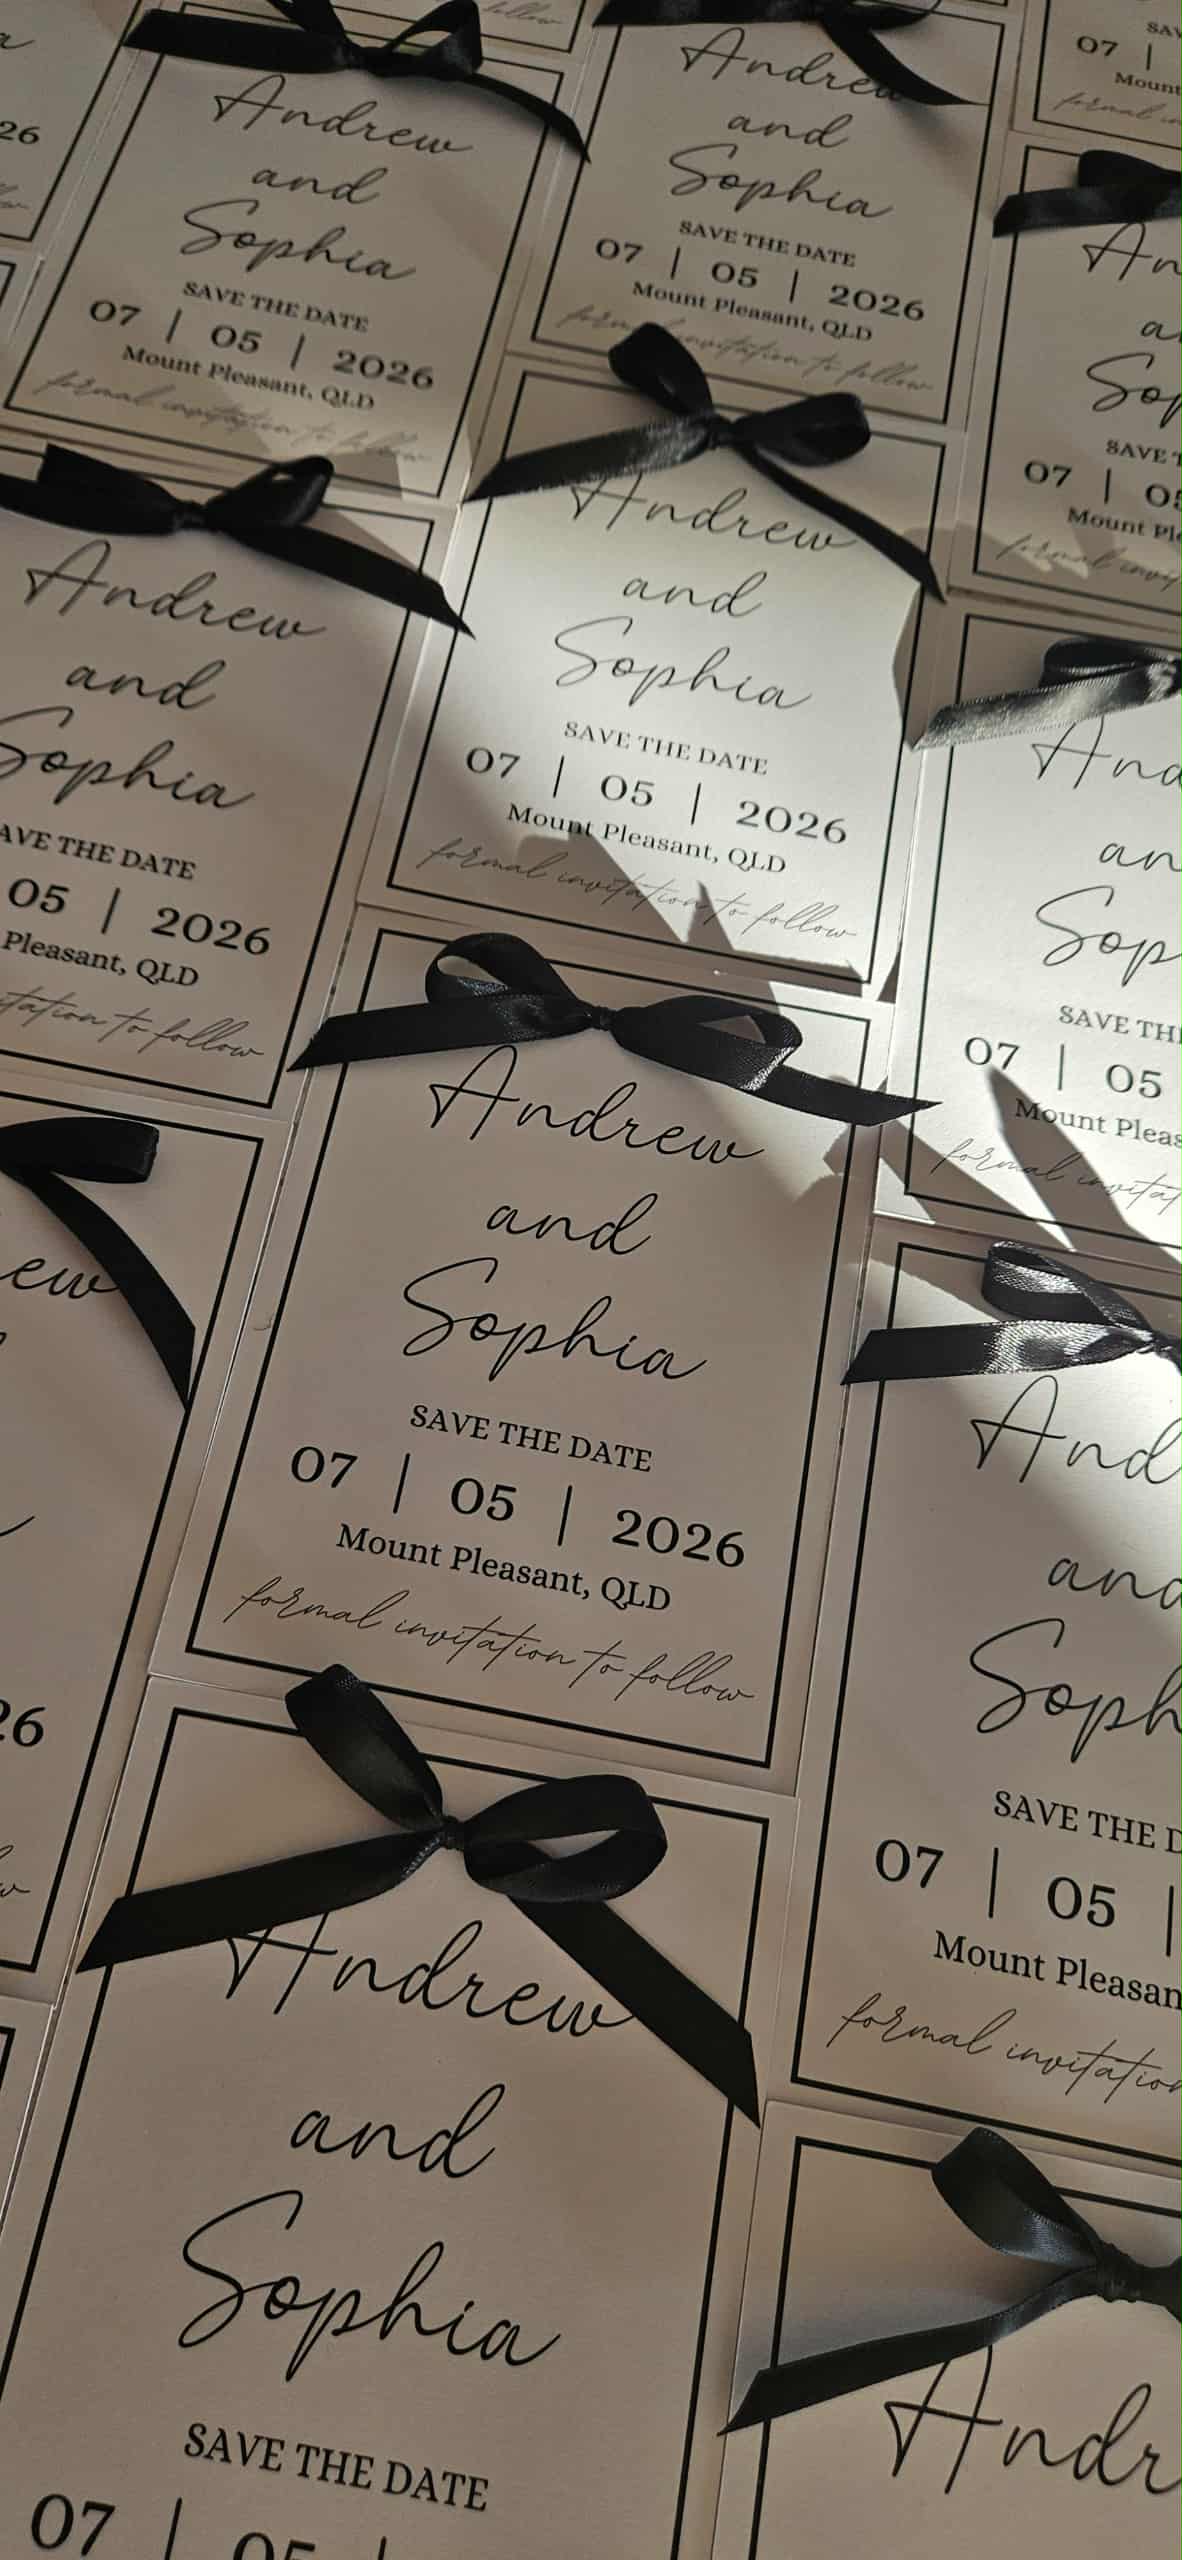 follow
Andrew
and
Sophia
SAVE THE DATE
07 | 05 | 2026
Mount Pleasant, QLD
formal invitation to follow
Andrew
and
Sophia
SAVE THE DATE
07 | 05 | 2026
Mount Pleasant, QLD
formal invitation to follow
07 |
Mount
formal
26
SAVE
07 | 05
Mount
formal
Andrew
and
Sophia
THE DATE
05 | 2026
Pleasant, QLD
to follow
Andrew
and
Sophia
SAVE THE DATE
07 | 05 | 2026
Mount Pleasant, QLD
formal invitation to follow
SAVE
07 | 05
Mount
formal
Andrew
and
Sophia
SAVE THE DATE
07 | 05 | 2026
Mount Pleasant, QLD
formal invitation to follow
and
SAVE THE
07 | 05 |
Mount
formal invitation
Andrew
and
Sophia
SAVE THE DATE
07 | 05 |